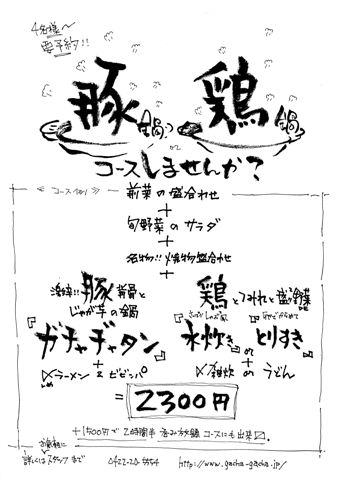 4名様〜
要予約!!
豚鍋 or 鶏鍋
コースしませんか?
≪ コース例 ≫
前菜の盛合わせ
+
旬野菜のサラダ
+
名物!!焼物盛合わせ
+
激辛!!豚背骨と
じゃが芋の鍋
『ガチャヂャタン』
+
〆ラーメン & ビビンバ
鶏とつみれと
『水炊き』or『とりすき』
+
〆雑炊 or うどん
= 2300円
+1500円で2時間半 呑み放題コースにも出来〼。
お気軽に
詳しくはスタッフまで
0422-20-5554
http://www.gacha-gacha.jp/